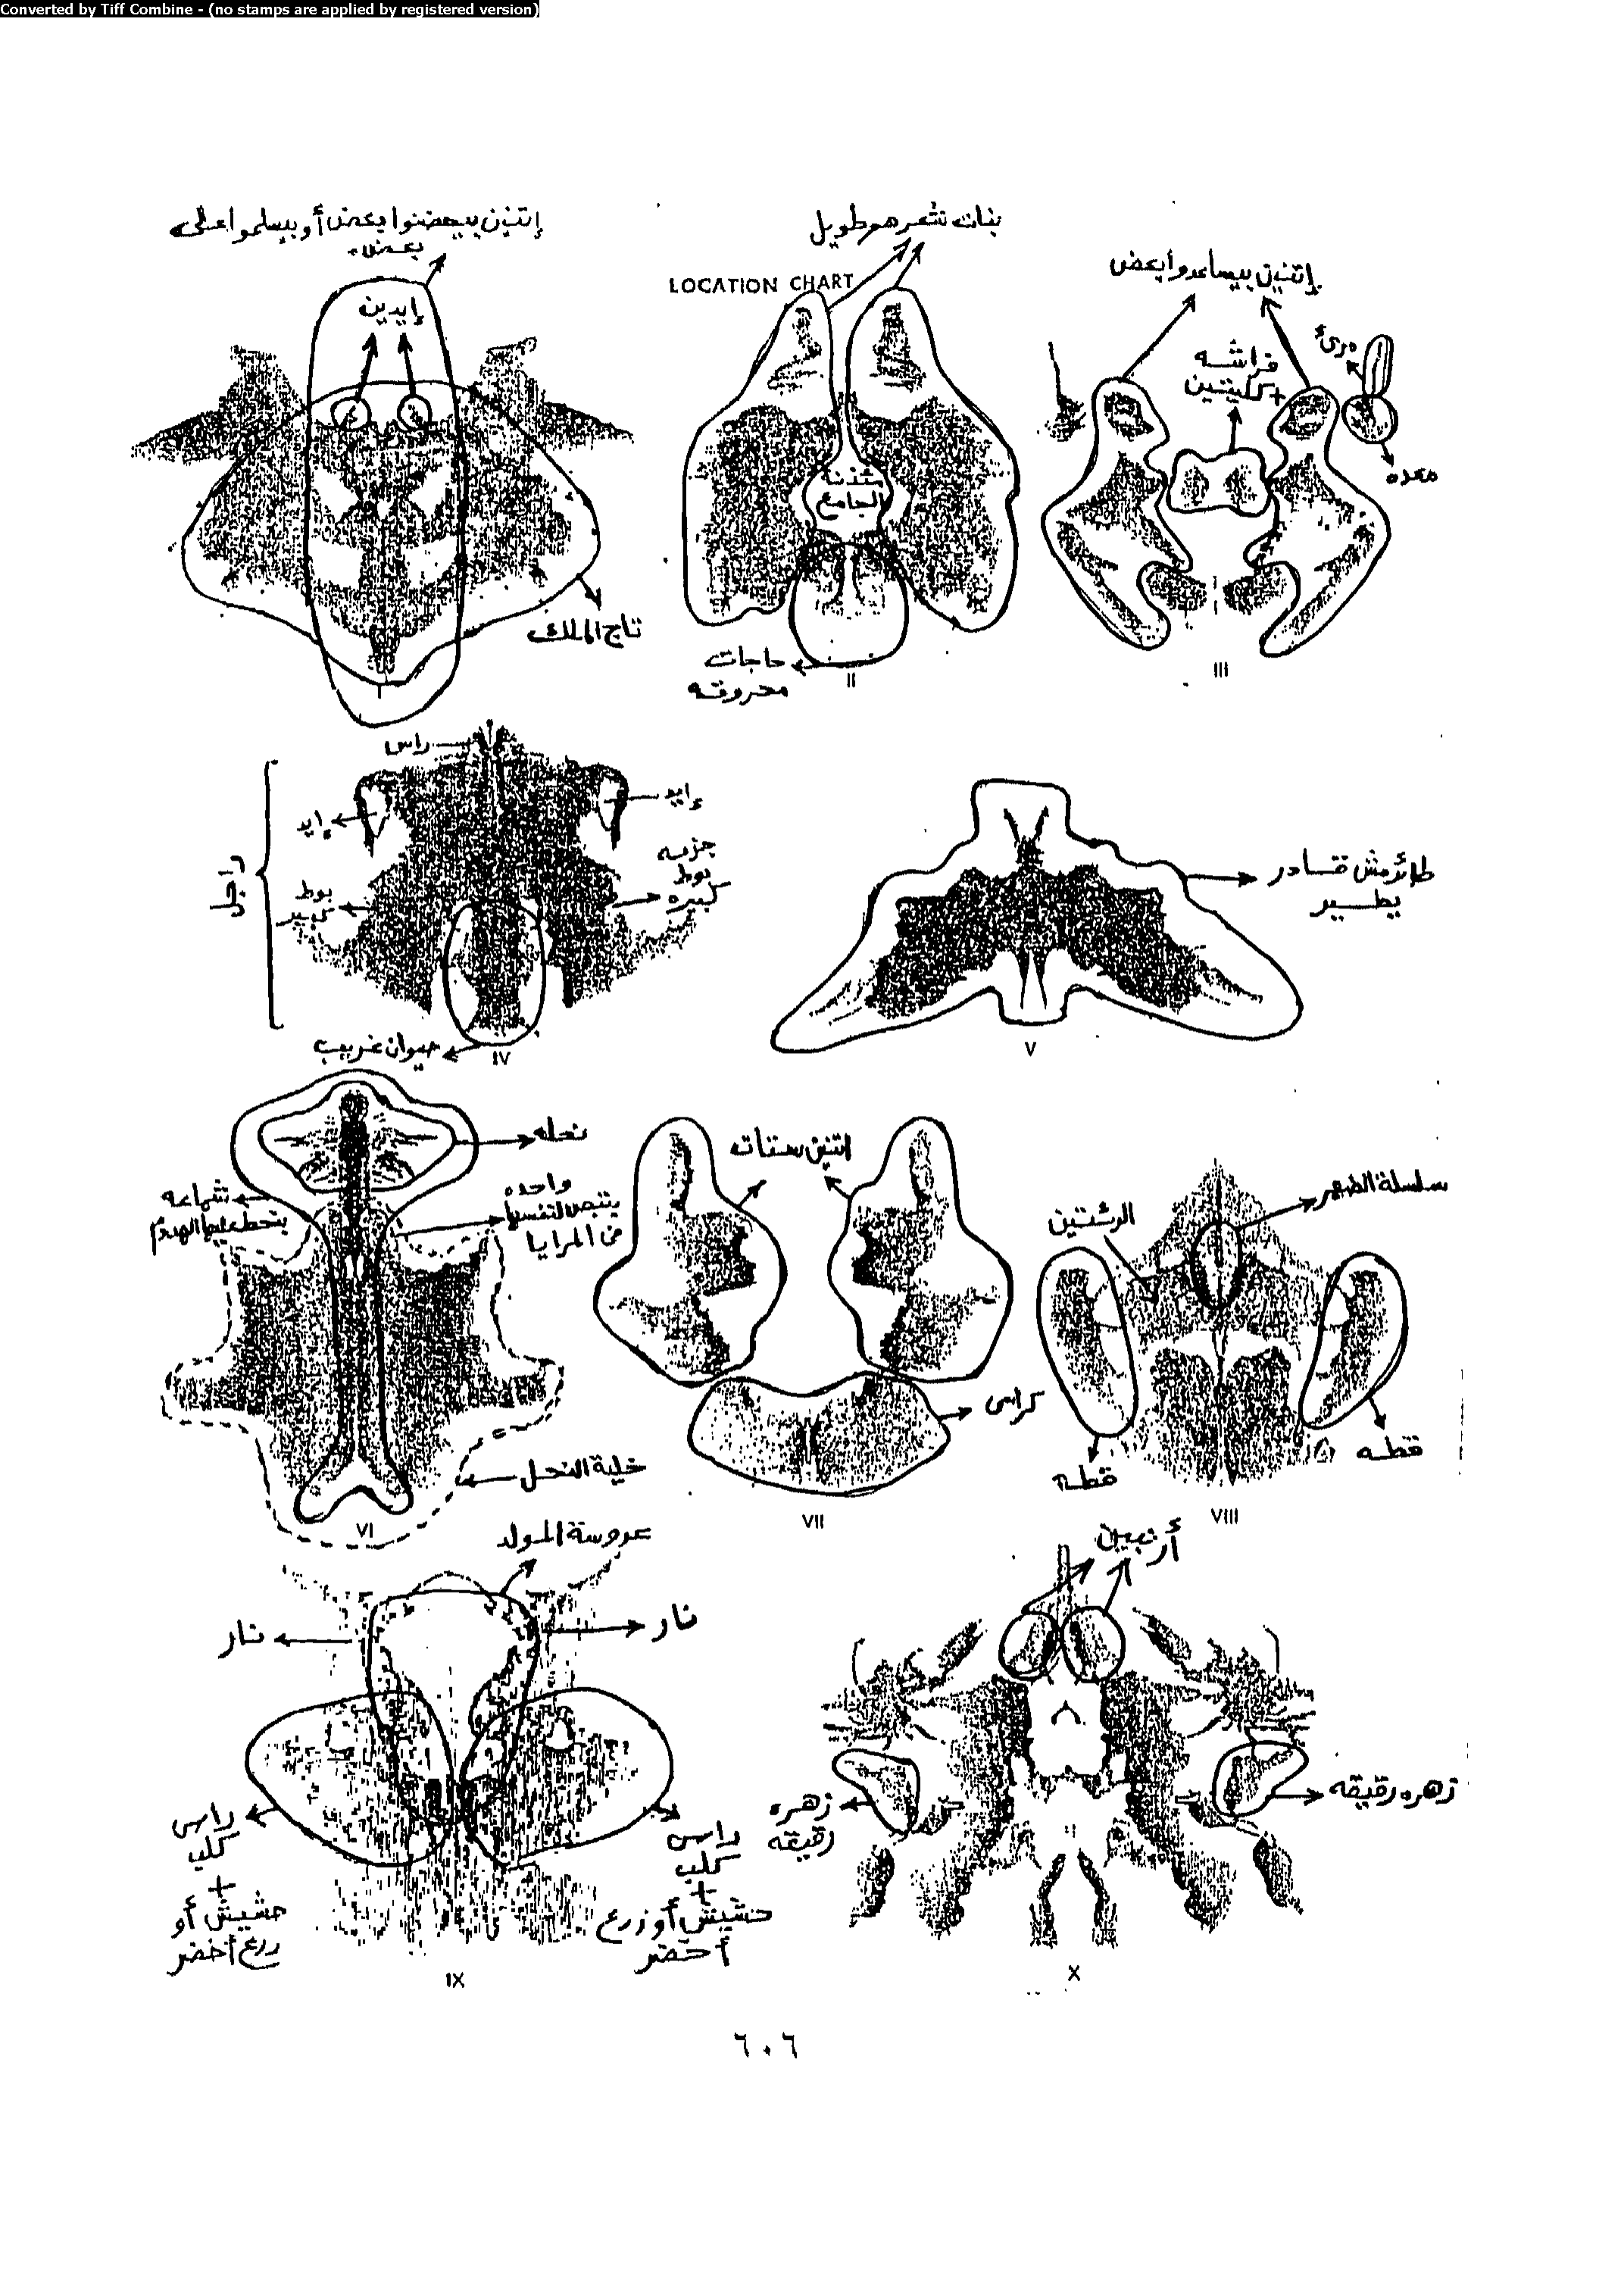 Converted by Tiff Combine - (no stamps are applied by registered version)
إتنين بيحضنوا بعض أو بيسلموا على
بعض
إيدين
تاج الملك
I
بنات شعرهم طويل
LOCATION CHART
الجامع
حاجات
محروقه
II
إتنين بيساعدوا بعض
فراشه
+ كليتين
مرئ
معده
III
راس
إيد
إيد
راجل
بوط
كبير
جزمه
بوط
كبيره
حيوان غريب
IV
طائر مش قادر
يطير
V
نحله
شماعه
بتحط عليها الهدوم
واحده
بتبص لنفسها
فى المرايا
خلية النحل
VI
اتنين ستات
كراسى
VII
سلسلة الضهر
الرئتين
قطه
قطه
VIII
عروسة المولد
نار
نار
راس
كلب
+
حشيش أو
زرع أخضر
راس
كلب
+
حشيش أو زرع
أخضر
IX
أرنبين
زهره
رقيقه
زهره رقيقه
X
٦٠٦